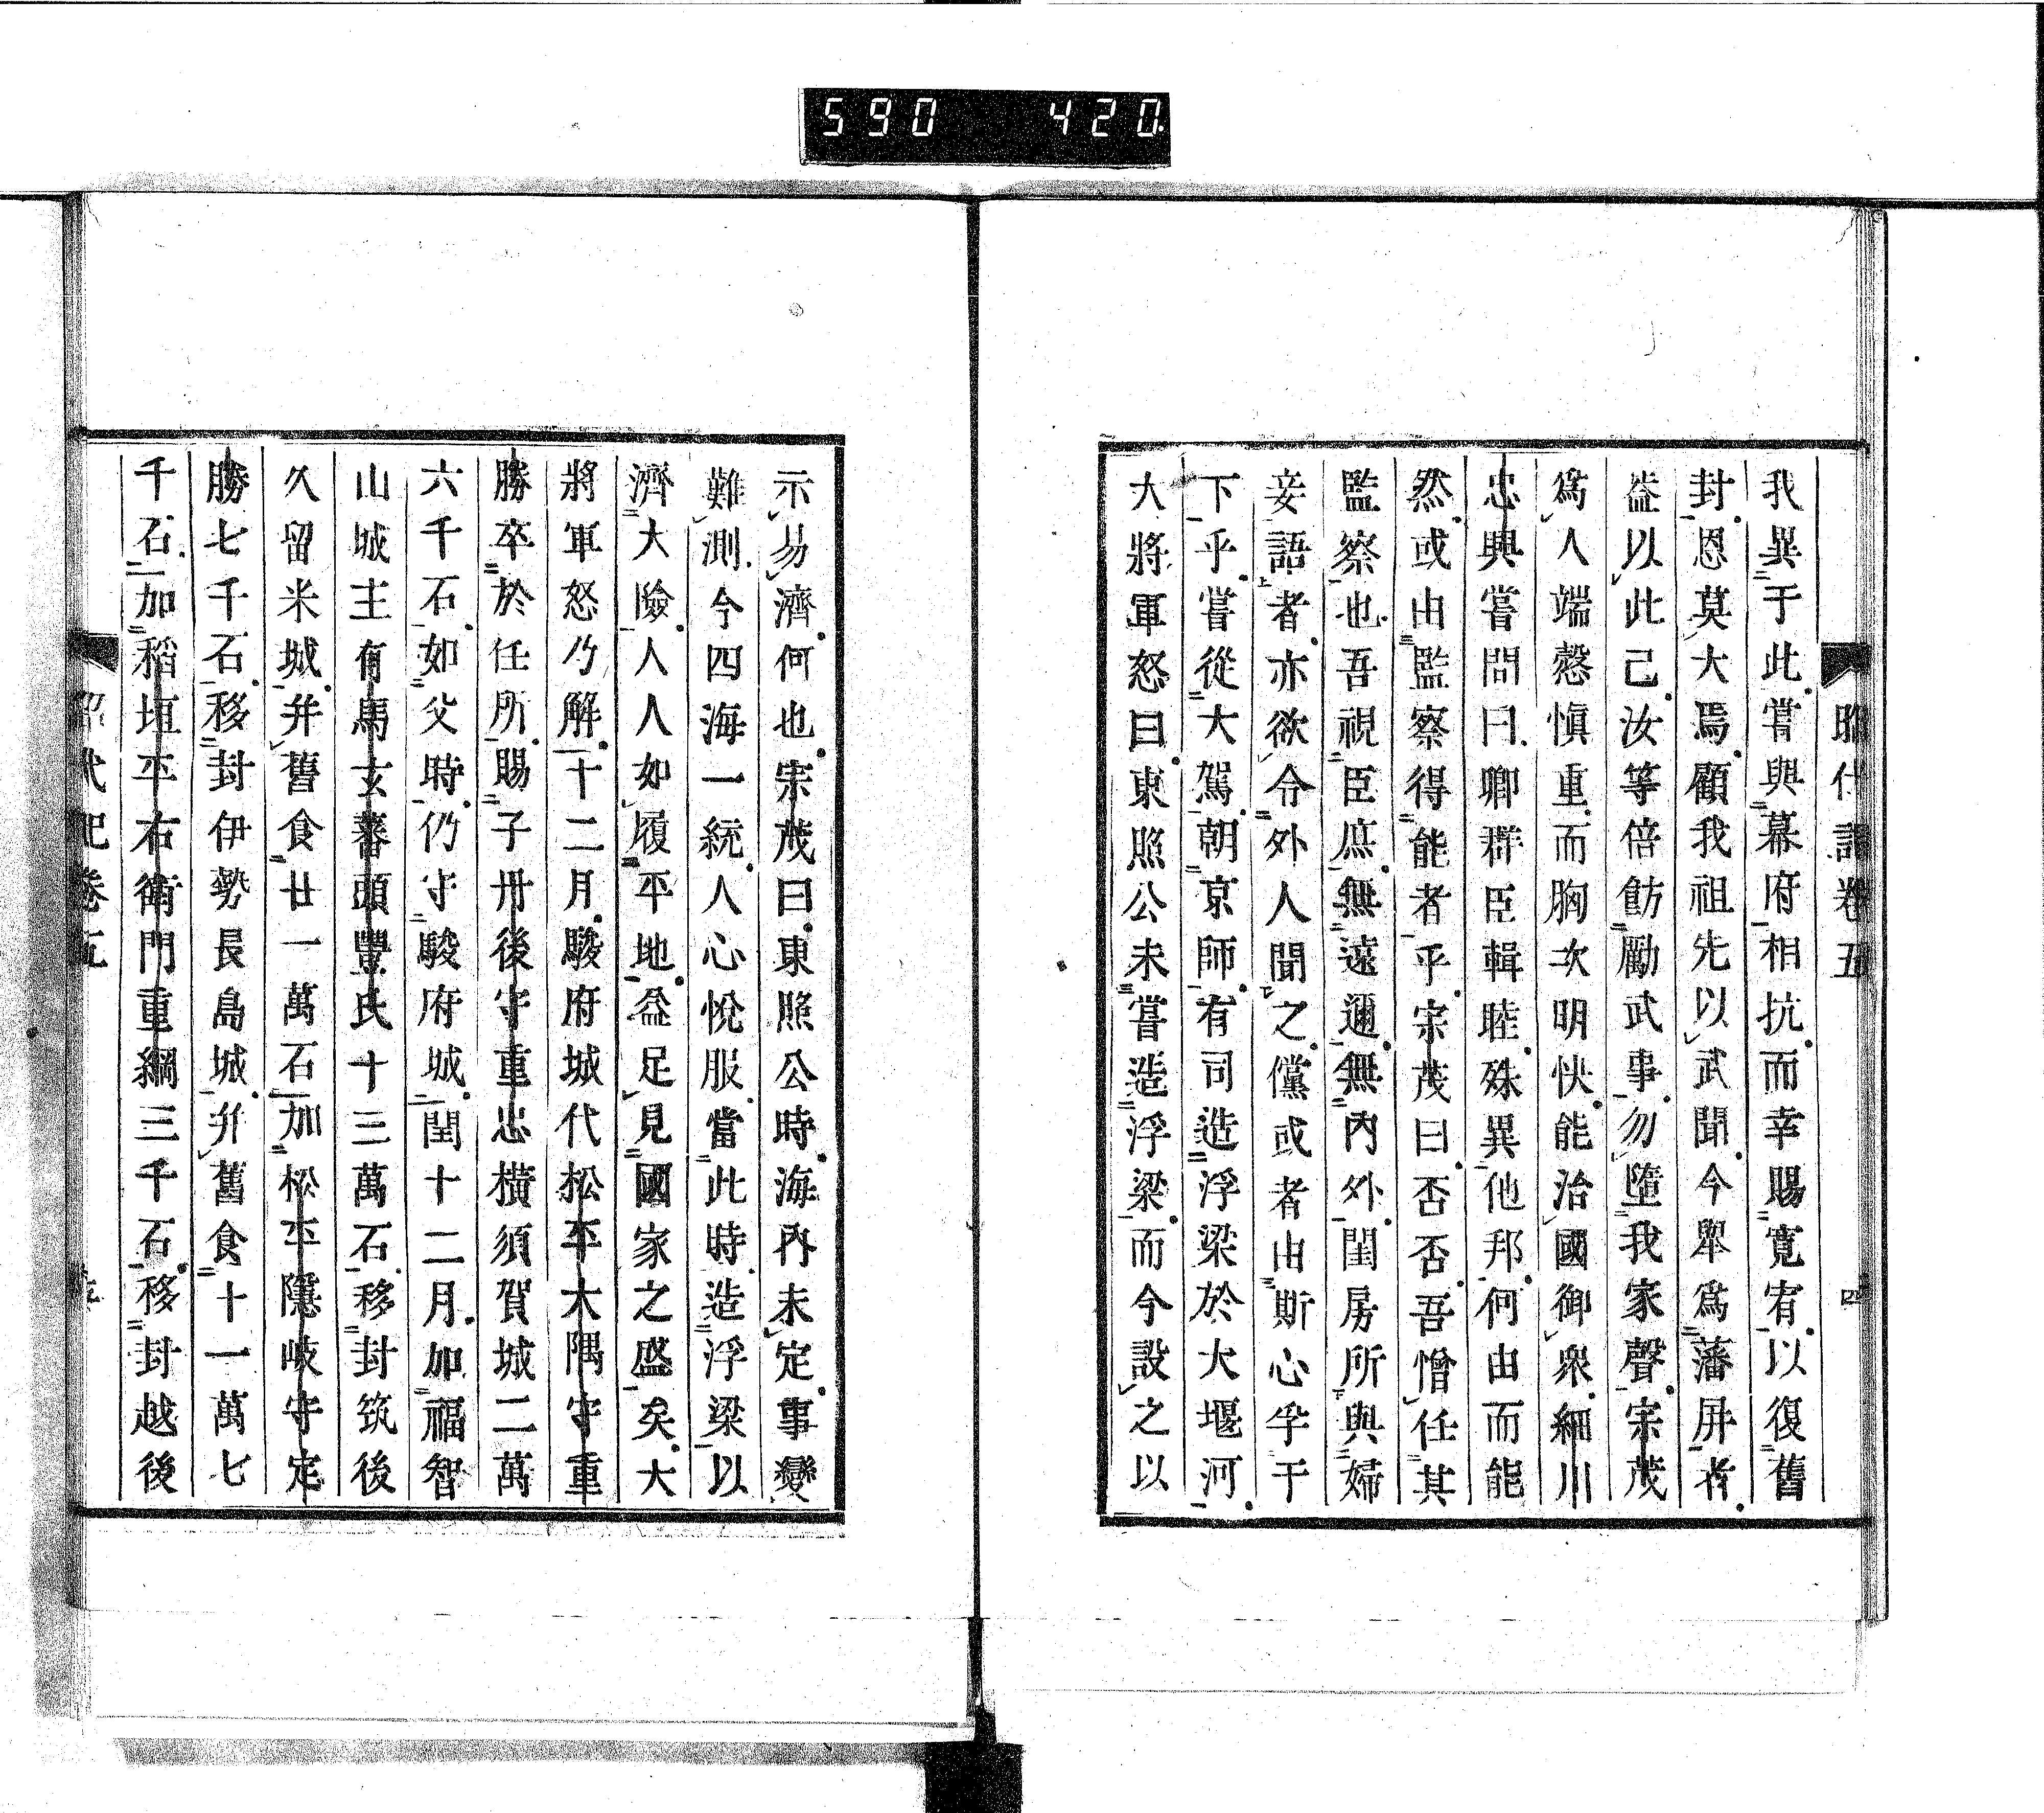 590 420
昭代記卷五 四
我異于此嘗與幕府相抗而幸賜寬宥以復舊
封恩莫大焉顧我祖先以武聞今擧爲藩屏者
益以此已汝等倍飭勵武事勿墮我家聲宗茂
爲人端愨愼重而胸次明快能治國御衆細川
忠興嘗問曰卿群臣輯睦殊異他邦何由而能
然或由監察得能者乎宗茂曰否否吾憎任其
監察也吾視臣庶無遠邇無內外閨房所與婦
妾語者亦欲令外人聞之儻或者由斯心孚于
下乎嘗從大駕朝京師有司造浮梁於大堰河
大將軍怒曰東照公未嘗造浮梁而今設之以
示易濟何也宗茂曰東照公時海內未定事變
難測今四海一統人心悅服當此時造浮梁以
濟大險人人如履平地益足見國家之盛矣大
將軍怒乃解十二月駿府城代松平大隅守重
勝卒於任所賜子丹後守重忠橫須賀城二萬
六千石如父時仍守駿府城閏十二月加福智
山城主有馬玄蕃頭豐氏十三萬石移封筑後
久留米城幷舊食廿一萬石加松平隱岐守定
勝七千石移封伊勢長島城幷舊食十一萬七
千石加稻垣平右衛門重綱三千石移封越後
昭代記卷五